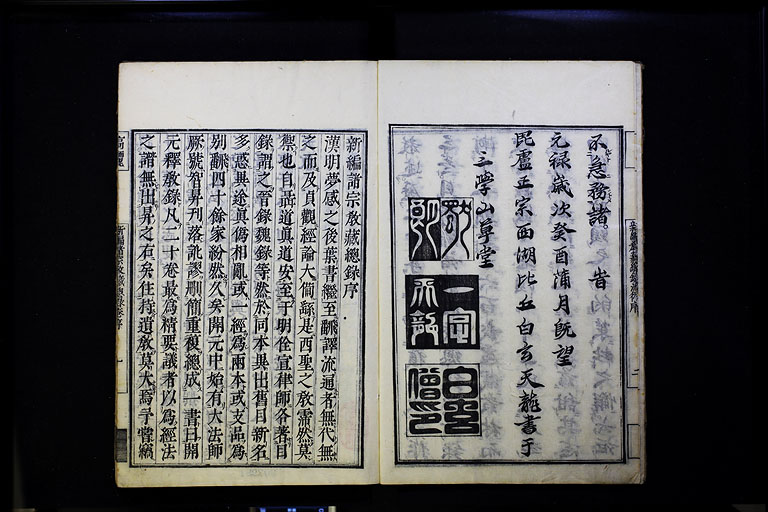 不急務諸。告
元禄歳次癸酉蒲月既望
毘盧正宗西湖比丘白玄天龍書于
三學山草堂
新編諸宗教藏總錄序
漢明夢感之後葉書繼至翻譯流通者無代無
之而及貞觀經論大備繇是西聖之教霈然莫
禦也自聶道真道安至于明佺宣律師各著目
錄謂之晉錄魏錄等然於同本異出舊目新名
多惑異途真僞相亂或一經爲兩本或支品爲
別翻四十餘家紛然久矣開元中始有大法師
厥號智昇刊落訛謬刪簡重複總成一書曰開
元釋教錄凡二十卷最爲精要議者以爲經法
之譜無出昇之右矣住持遺教莫大焉予甞竊